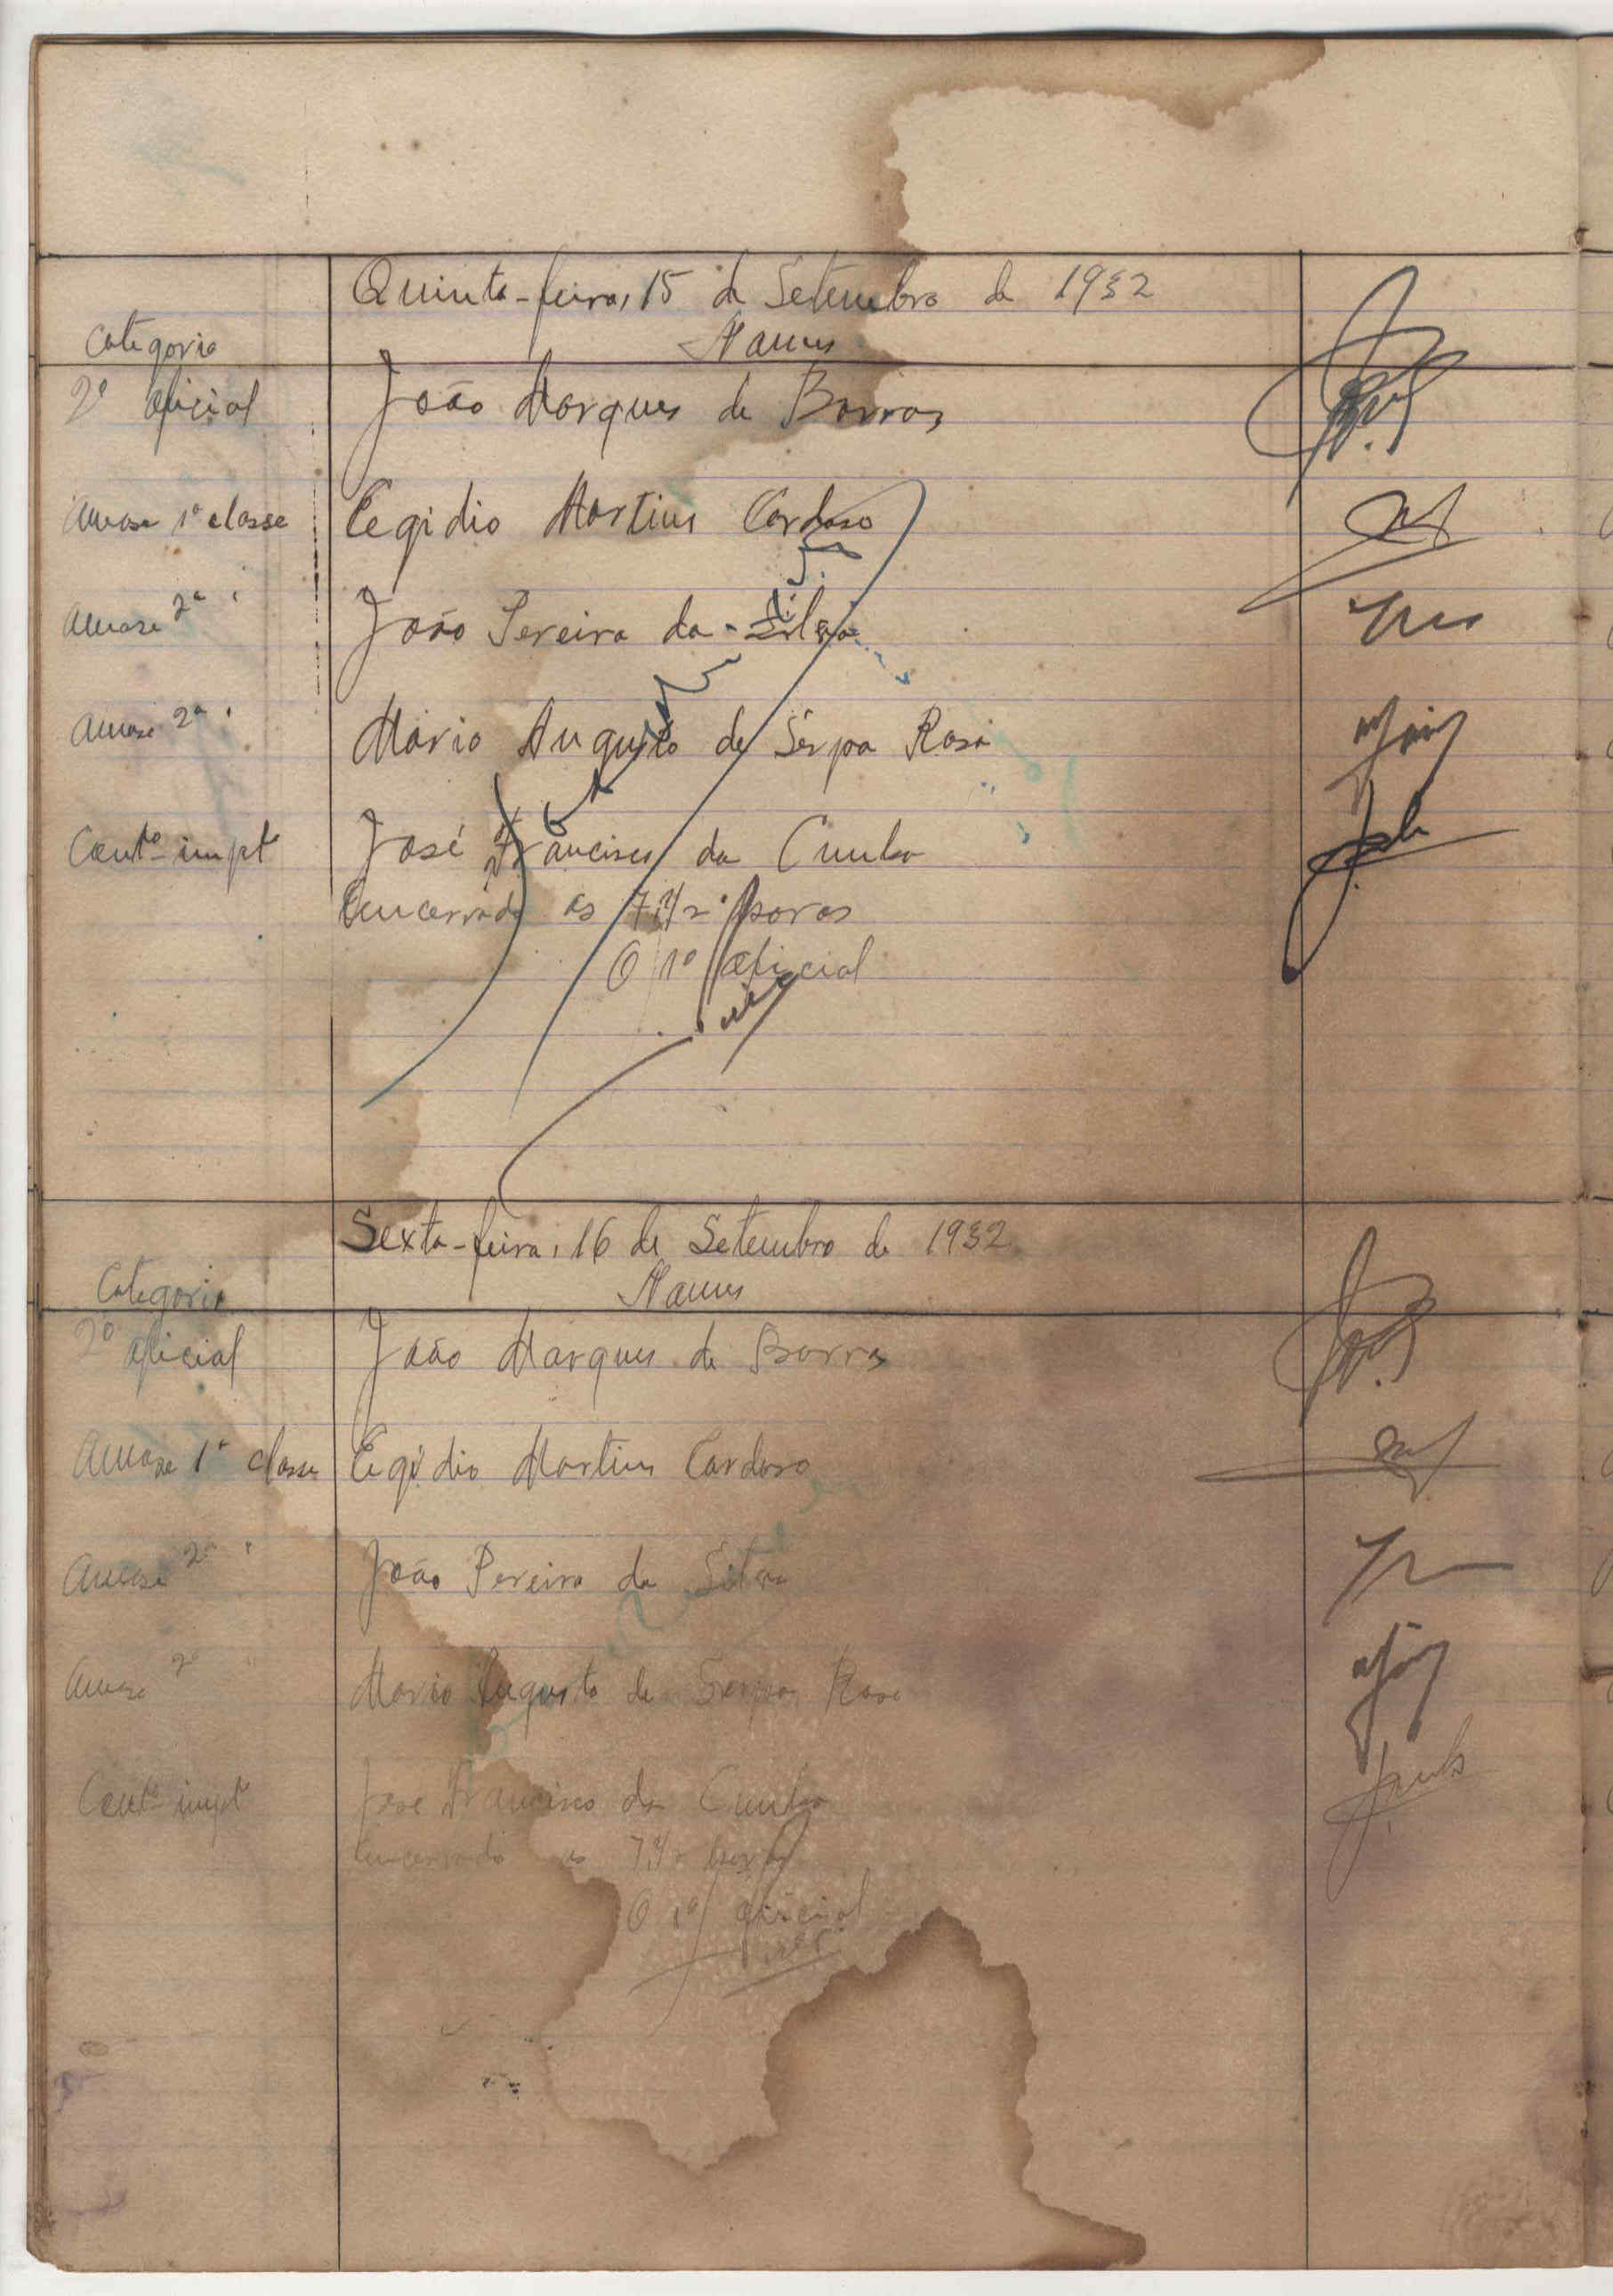 Quinta-feira, 15 de Setembro de 1932
Categoria Nomes
2º Oficial João Marques de Barros
1ª classe Egidio Martins Cardoso
2ª " João Pereira da Silva
2ª " Mário Augusto de Serpa Rosa
José Francisco da Cunha
Encerrado ás 7,1/2 horas
O 1º Oficial
Sexta-feira, 16 de Setembro de 1932
Categoria Nomes
2º Oficial João Marques de Barros
1ª classe Egidio Martins Cardoso
2ª " João Pereira da Silva
2ª " Mario Augusto de Serpa Rosa
José Francisco da Cunha
Encerrado ás 7,1/2 horas
O 1º Oficial